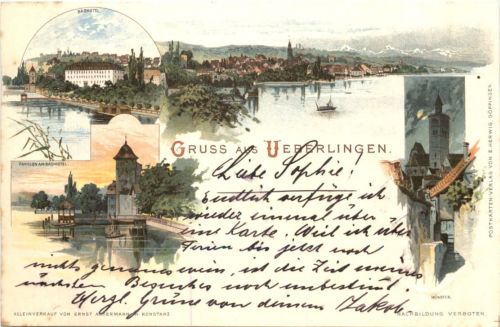 BADHOTEL
GRUSS AUS UEBERLINGEN.
PAVILLON AM BADHOTEL
MÜNSTER.
POSTKARTEN-VERLAG VON E. HERWIG, GÖPPINGEN
Liebe Sophie!
Endlich ich
wieder einmal über
eine Karte. Weil ich über
Ferien bis jetzt noch
nichts genaues weis, ist die Zeit meines
nächsten Besuches noch unbestimmt.
Herzl. Grüsse von deinem Jakob
ALLEINVERKAUF VON ERNST ACKERMANN IN KONSTANZ
NACHBILDUNG VERBOTEN.